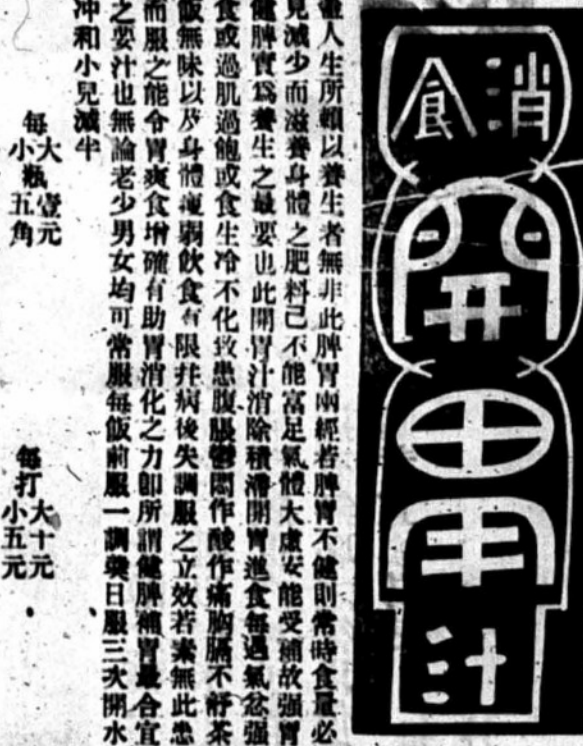 消食
開胃汁
人生所賴以養生者無非此脾胃兩經若脾胃不健則常時食量必
見減少而滋養身體之肥料已不能富足氣體大虛安能受補故强胃
健脾實爲養生之最要也此開胃汁消除積滯開胃進食每遇氣忿强
食或過肌過飽或食生冷不化致患腹脹鬱悶作酸作痛胸膈不舒茶
飯無味以及身體瘦弱飲食有限幷病後失調服之立效若素無此患
而服之能令胃爽食增確有助胃消化之力卽所謂健脾補胃最合宜
之要汁也無論老少男女均可常服每飯前服一調羹日服三次開水
冲和小兒減半
每大瓶壹元
小瓶五角
每打大十元
小五元